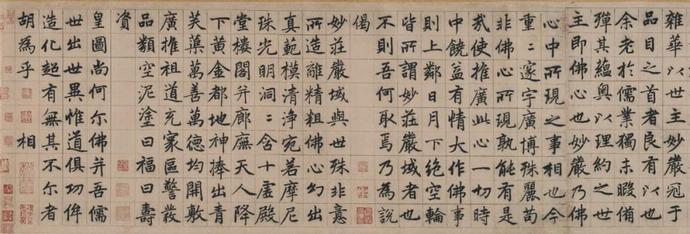 雜華以世主妙嚴冠于
品目之首者良有以也
余老於儒業獨未暇備
殫其蘊奧以理約之世
主即佛心也妙嚴乃佛
心中所現之事相也今
重二邃宇廣博殊麗苟
非佛心所現孰能有
我使推廣此心一切時
中饒益有情大作佛事
則上鄰日月下絕空輪
皆所謂妙莊嚴域者也
不則吾何取焉乃為說
偈
妙莊嚴域與世殊非意
所造離精粗佛心幻出
真範模清淨宛若摩尼
珠光明洞二含十虛殿
堂樓閣并廊廡天人降
下黃金都地神捧出青
芙蕖萬善萬德均開敷
廣推祖道充家區警發
品類空泥塗曰福曰壽
資
皇圖尚何尔佛并吾儒
世出世異惟道俱功侔
造化超有無其不尔者
胡為乎 相